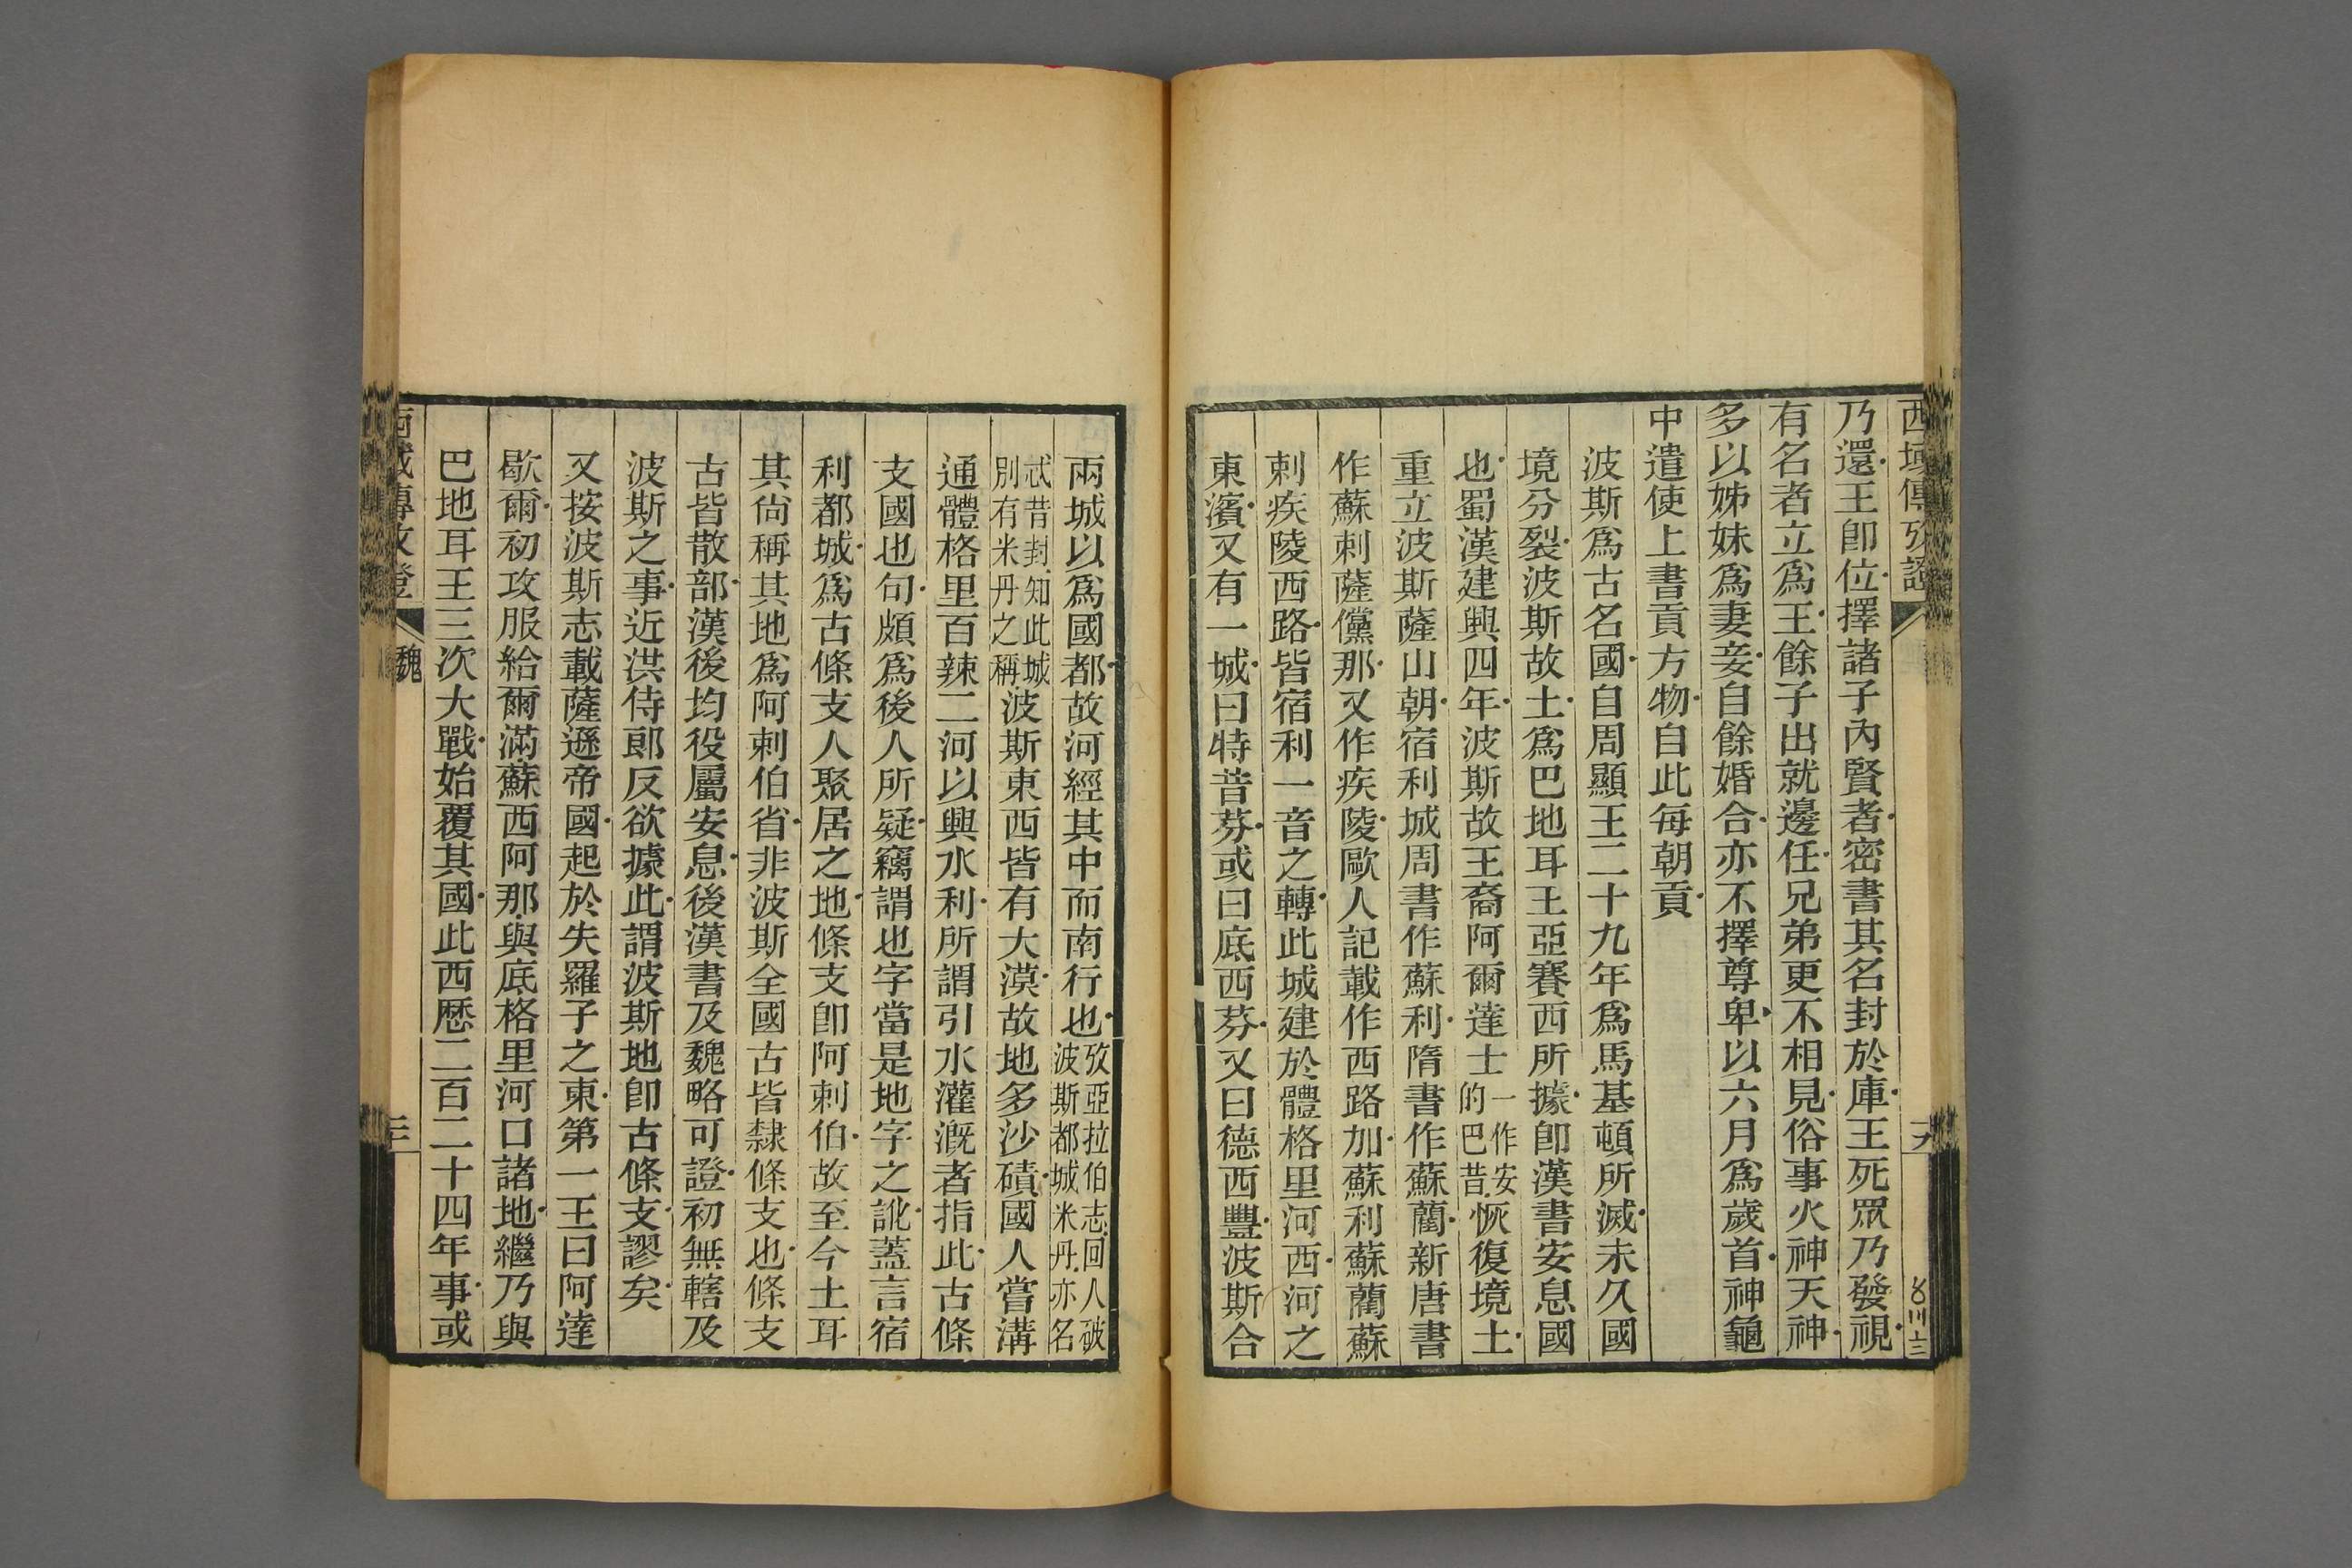 西域傳攷證
乃還王卽位擇諸子內賢者密書其名封於庫王死眾乃發視
有名者立爲王餘子出就邊任兄弟更不相見俗事火神天神
多以姊妹爲妻妾自餘婚合亦不擇尊卑以六月爲歲首神龜
中遣使上書貢方物自此每朝貢
波斯爲古名國自周顯王二十九年爲馬基頓所滅未久國
境分裂波斯故土爲巴地耳王亞賽西所據卽漢書安息國
也蜀漢建興四年波斯故王裔阿爾達士一作安的巴昔恢復境土
重立波斯薩山朝宿利城周書作蘇利隋書作蘇藺新唐書
作蘇剌薩儻那又作疾陵歐人記載作西路加蘇利蘇藺蘇
剌疾陵西路皆宿利一音之轉此城建於體格里河西河之
東濱又有一城曰特昔芬或曰底西芬又曰德西豐波斯合
兩城以爲國都故河經其中而南行也攷亞拉伯志回人破波斯都城米丹亦名
忒昔封知此城別有米丹之稱波斯東西皆有大漠故地多沙磧國人嘗溝
通體格里百辣二河以興水利所謂引水灌漑者指此古條
支國也句頗爲後人所疑竊謂也字當是地字之訛蓋言宿
利都城爲古條支人聚居之地條支卽阿剌伯故至今土耳
其尙稱其地爲阿剌伯省非波斯全國古皆隸條支也條支
古皆散部漢後均役屬安息後漢書及魏略可證初無轄及
波斯之事近洪侍郎反欲據此謂波斯地卽古條支謬矣
又按波斯志載薩遜帝國起於失羅子之東第一王曰阿達
歇爾初攻服給爾滿蘇西阿那與底格里河口諸地繼乃與
巴地耳王三次大戰始覆其國此西歷二百二十四年事或
西域傳攷證
魏